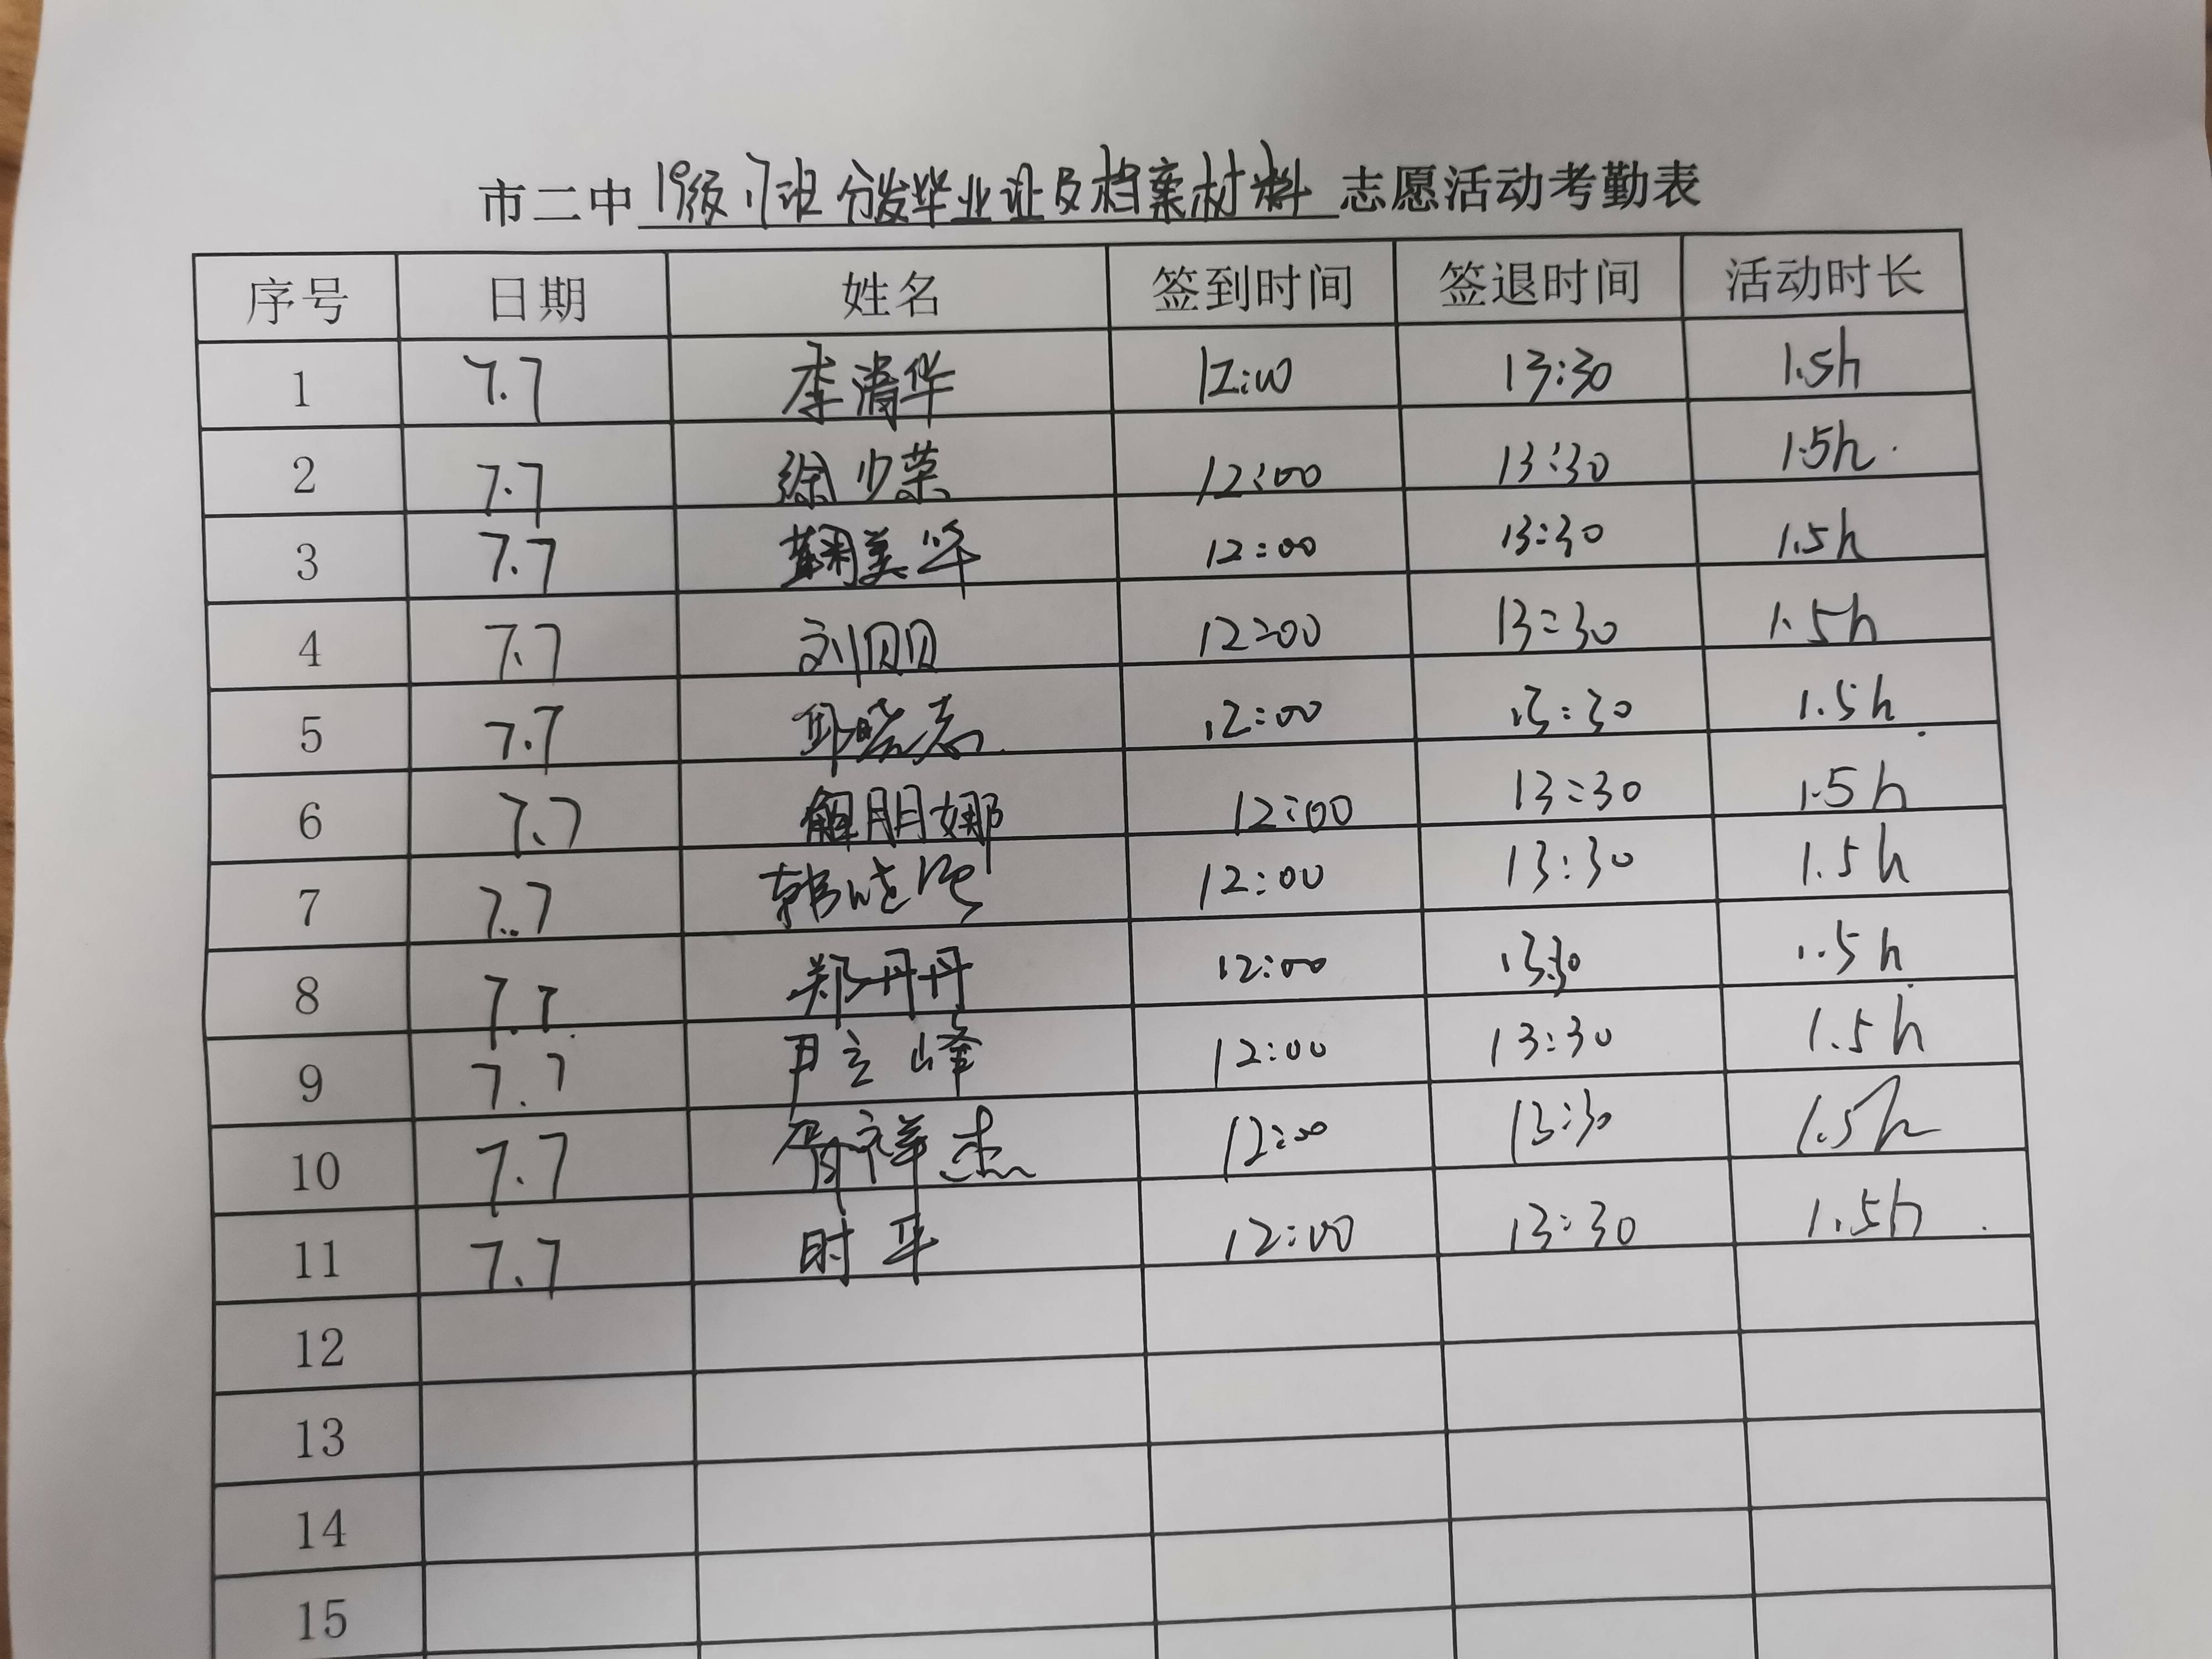 市二中19级17班分发毕业证及档案材料志愿活动考勤表
序号 日期 姓名 签到时间 签退时间 活动时长
1 7.7 李清华 12:00 13:30 1.5h
2 7.7 徐少荣 12:00 13:30 1.5h
3 7.7 美华 12:00 13:30 1.5h
4 7.7 刘贝贝 12:00 13:30 1.5h
5 7.7 邱晓志 12:00 13:30 1.5h
6 7.7 解朋娜 12:00 13:30 1.5h
7 7.7 韩晓 12:00 13:30 1.5h
8 7.7 郑丹丹 12:00 13:30 1.5h
9 7.7 尹立峰 12:00 13:30 1.5h
10 7.7 胥祥杰 12:00 13:30 1.5h
11 7.7 时平 12:00 13:30 1.5h
12
13
14
15